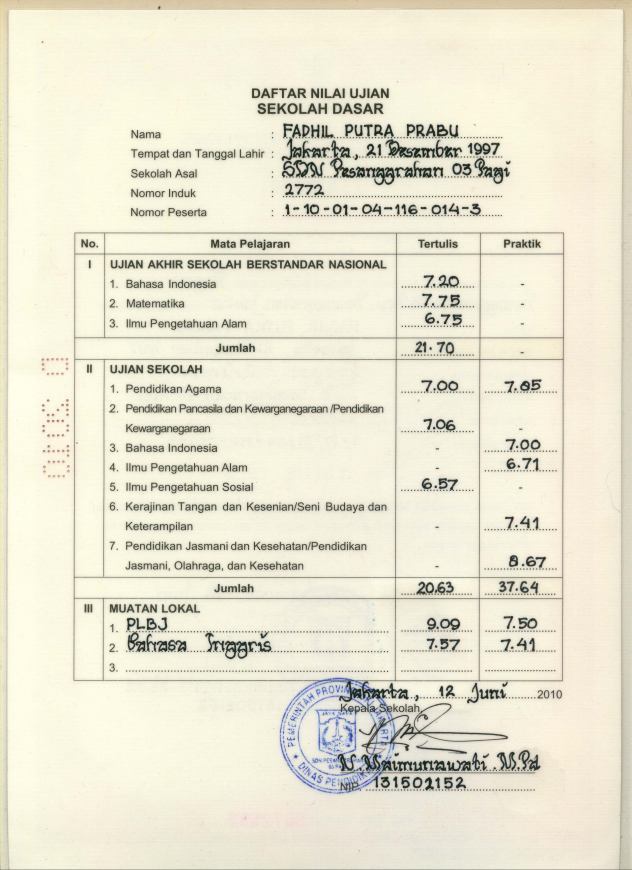 DAFTAR NILAI UJIAN
SEKOLAH DASAR
Nama : FADHIL PUTRA PRABU
Tempat dan Tanggal Lahir : Jakarta, 21 Desember 1997
Sekolah Asal : SDN Pesanggrahan 03 Pagi
Nomor Induk : 2772
Nomor Peserta : 1-10-01-04-116-014-3
No. Mata Pelajaran Tertulis Praktik
I UJIAN AKHIR SEKOLAH BERSTANDAR NASIONAL
1. Bahasa Indonesia 7.20 -
2. Matematika 7.75 -
3. Ilmu Pengetahuan Alam 6.75 -
Jumlah 21.70 -
II UJIAN SEKOLAH
1. Pendidikan Agama 7.00 7.85
2. Pendidikan Pancasila dan Kewarganegaraan /Pendidikan
Kewarganegaraan 7.06 -
3. Bahasa Indonesia - 7.00
4. Ilmu Pengetahuan Alam - 6.71
5. Ilmu Pengetahuan Sosial 6.57 -
6. Kerajinan Tangan dan Kesenian/Seni Budaya dan
Keterampilan - 7.41
7. Pendidikan Jasmani dan Kesehatan/Pendidikan
Jasmani, Olahraga, dan Kesehatan - 8.67
Jumlah 20.63 37.64
III MUATAN LOKAL
1. PLBJ 9.09 7.50
2. Bahasa Inggris 7.57 7.41
3.
Jakarta, 12 Juni 2010
Kepala Sekolah,
PEMERINTAH PROVINSI
DINAS PENDIDIKAN
N. Maimunawati. M.Pd
NIP. 131502152